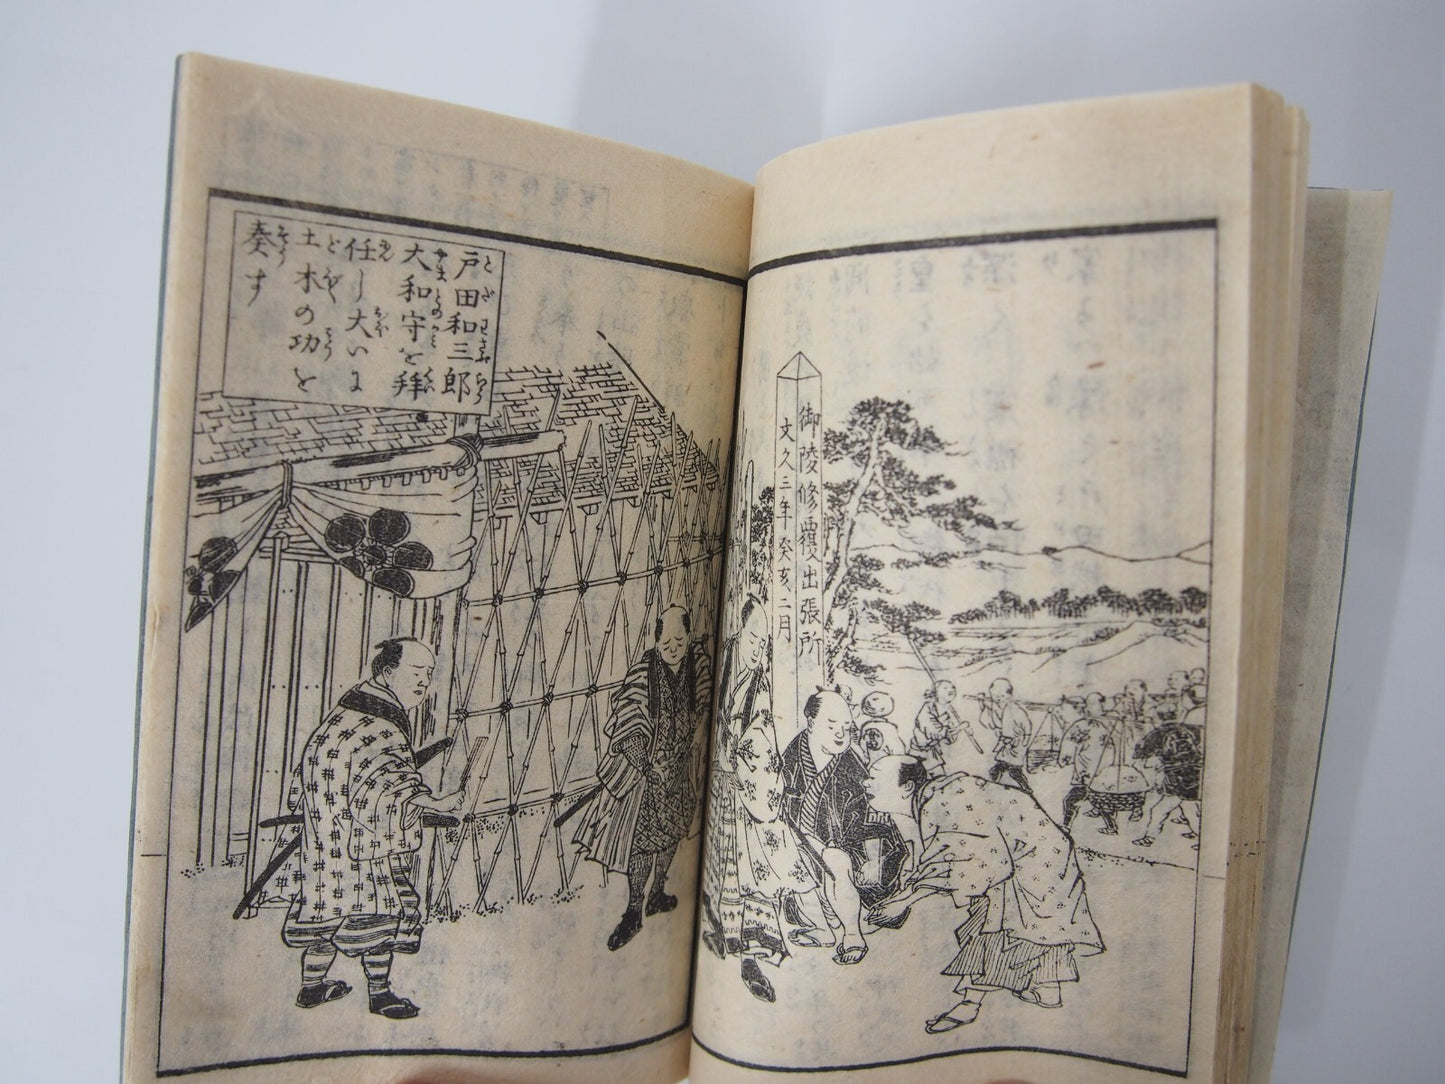 戸田和三郎
大和守を拜
任し大いに
土木の功を
奏す
御陵修覆出張所
文久三年癸亥二月